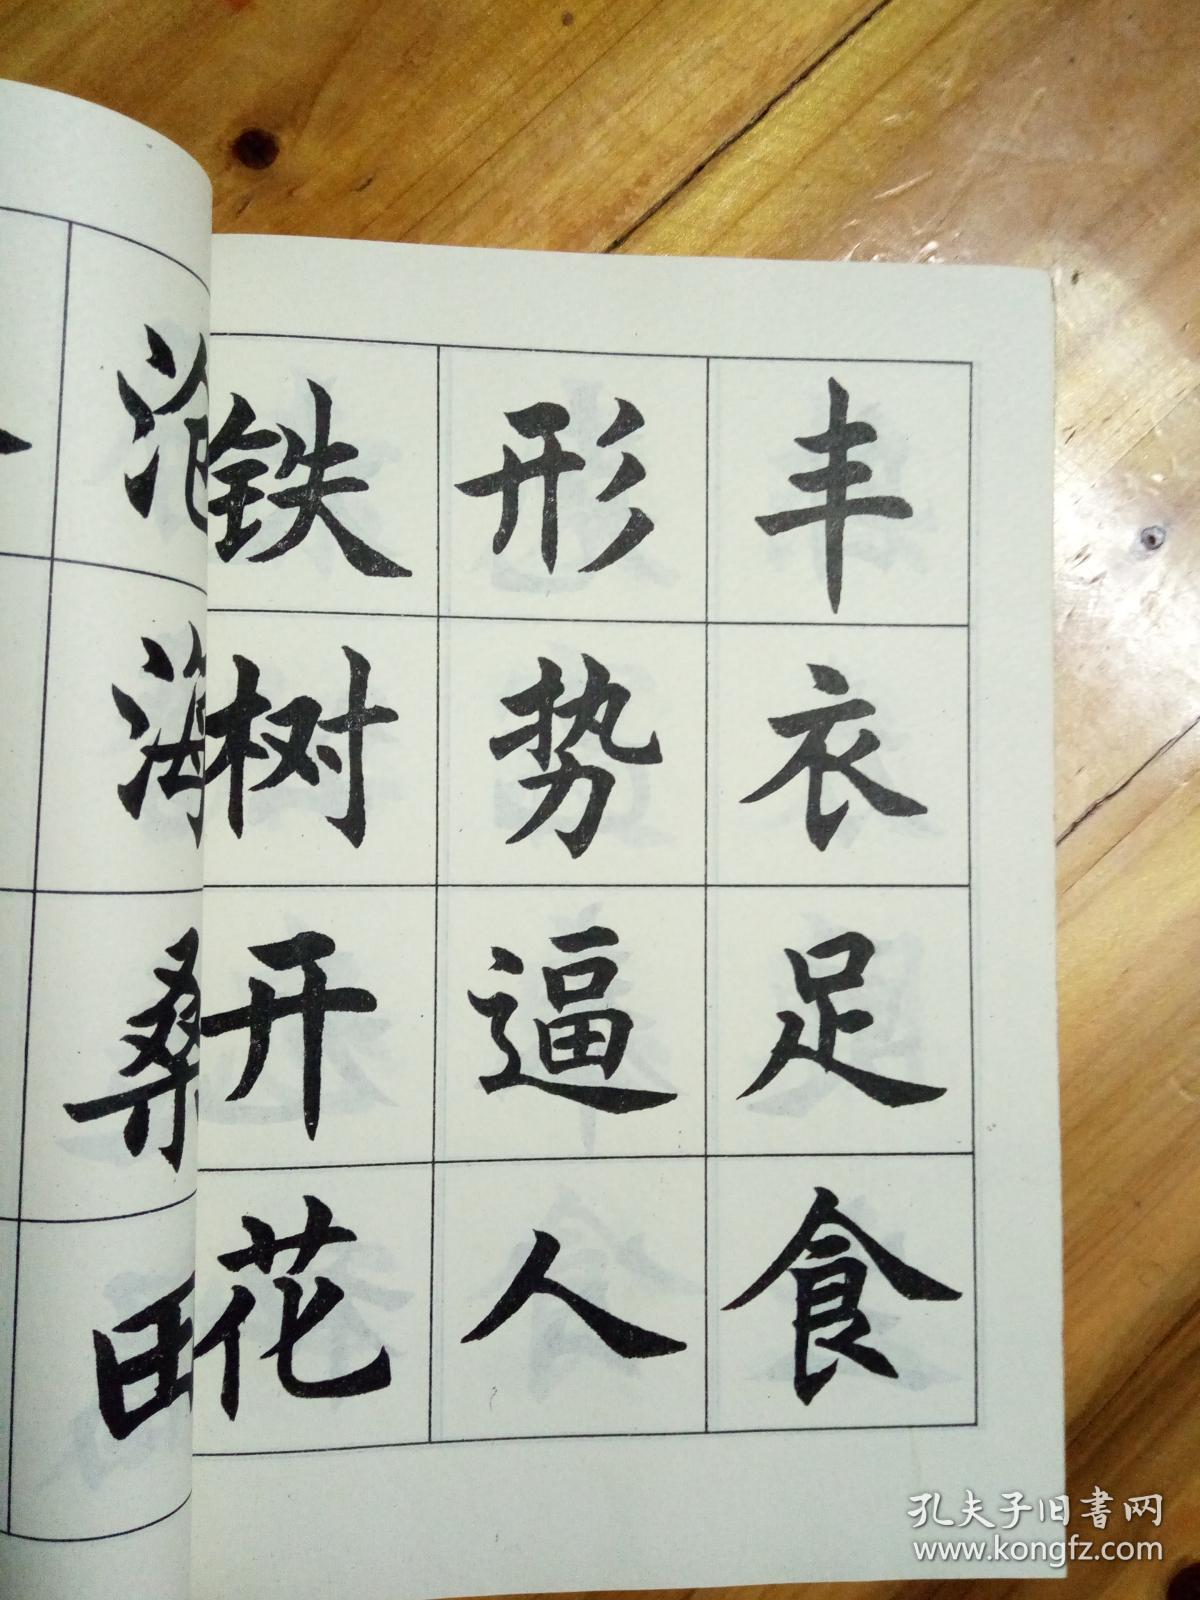 丰衣足食
形势逼人
铁树开花
沧海桑田
孔夫子旧書网
www.kongfz.com